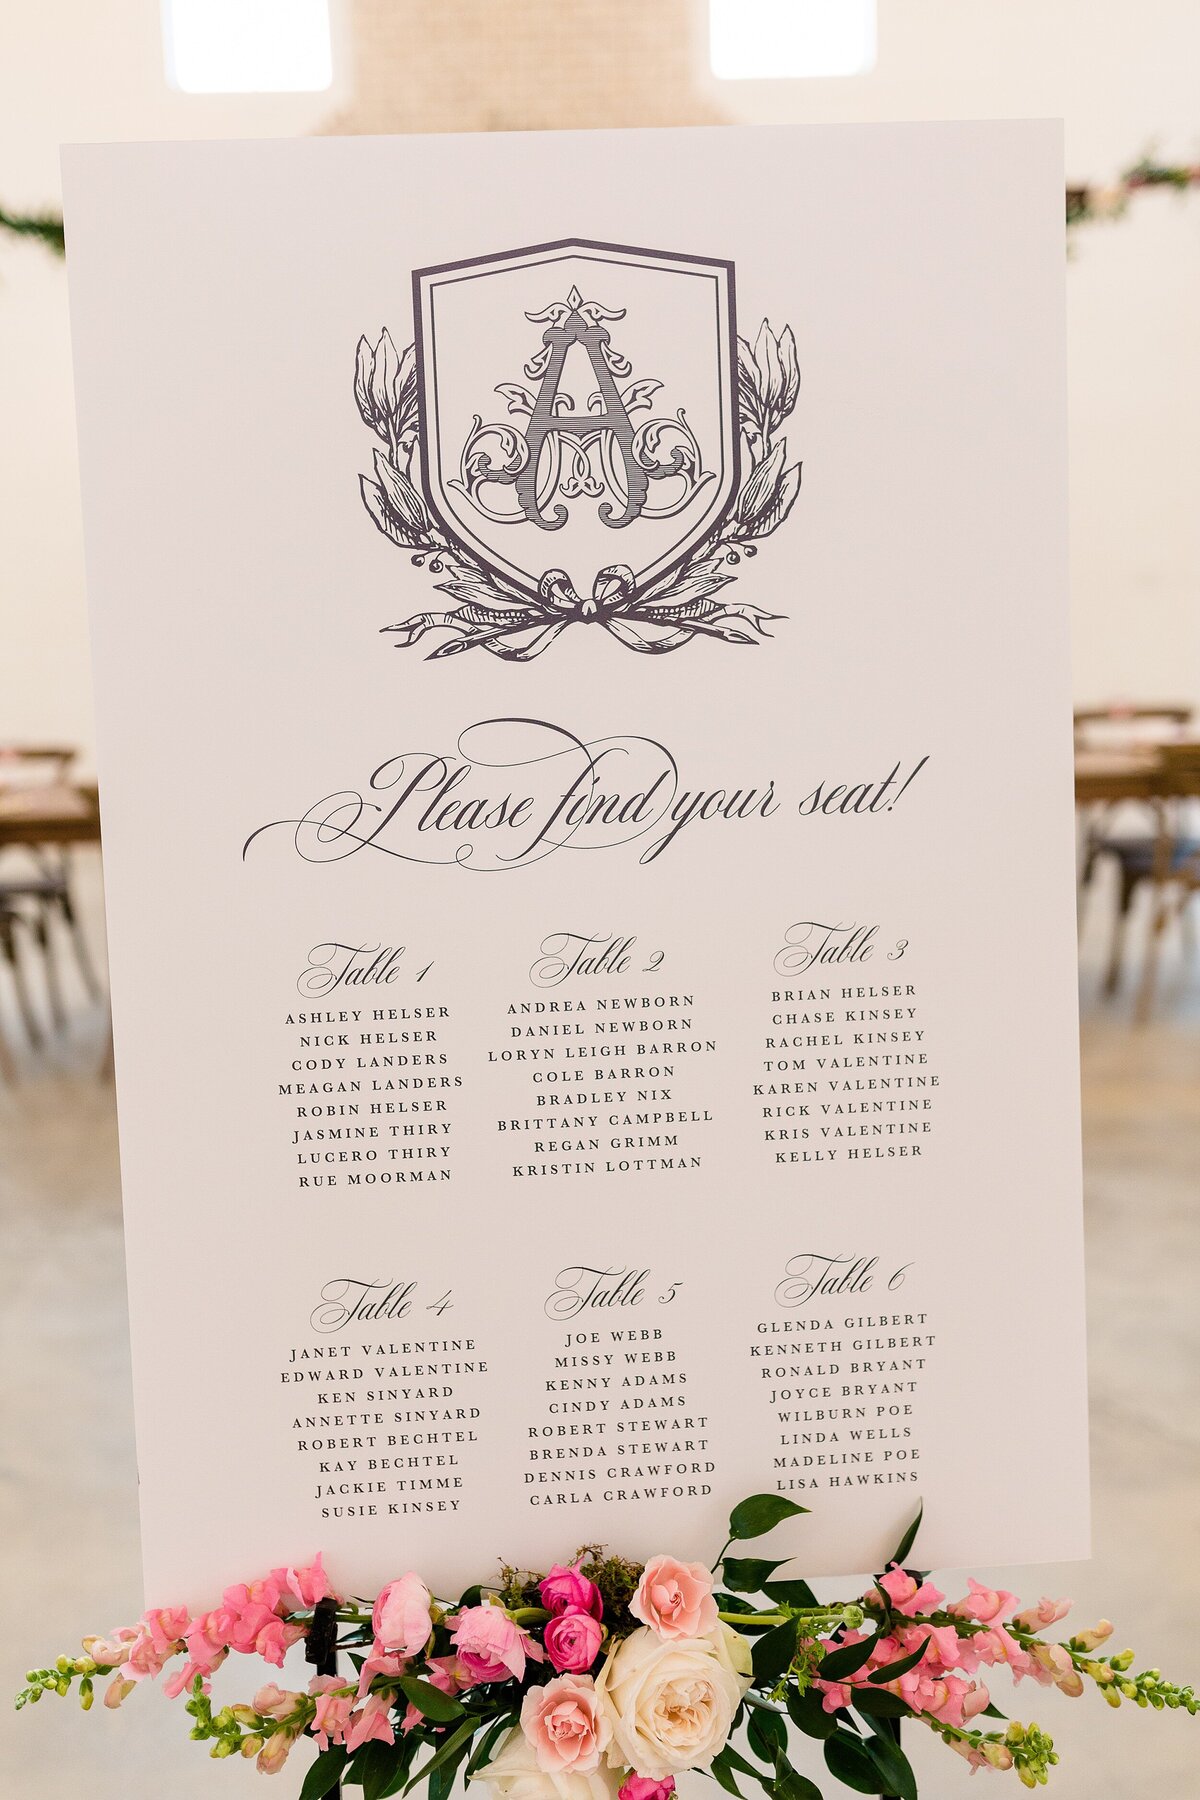 A
Please find your seat!
Table 1
ASHLEY HELSER
NICK HELSER
CODY LANDERS
MEAGAN LANDERS
ROBIN HELSER
JASMINE THIRY
LUCERO THIRY
RUE MOORMAN
Table 2
ANDREA NEWBORN
DANIEL NEWBORN
LORYN LEIGH BARRON
COLE BARRON
BRADLEY NIX
BRITTANY CAMPBELL
REGAN GRIMM
KRISTIN LOTTMAN
Table 3
BRIAN HELSER
CHASE KINSEY
RACHEL KINSEY
TOM VALENTINE
KAREN VALENTINE
RICK VALENTINE
KRIS VALENTINE
KELLY HELSER
Table 4
JANET VALENTINE
EDWARD VALENTINE
KEN SINYARD
ANNETTE SINYARD
ROBERT BECHTEL
KAY BECHTEL
JACKIE TIMME
SUSIE KINSEY
Table 5
JOE WEBB
MISSY WEBB
KENNY ADAMS
CINDY ADAMS
ROBERT STEWART
BRENDA STEWART
DENNIS CRAWFORD
CARLA CRAWFORD
Table 6
GLENDA GILBERT
KENNETH GILBERT
RONALD BRYANT
JOYCE BRYANT
WILBURN POE
LINDA WELLS
MADELINE POE
LISA HAWKINS